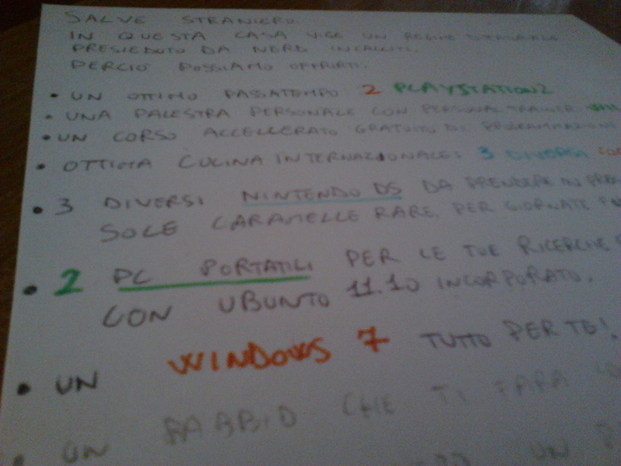 SALVE STRANIERO.
IN QUESTA CASA VIGE UN REGIME
PRESIEDUTO DA NERD INCALLITI.
PERCIÒ POSSIAMO OFFRIRTI:
• UN OTTIMO PASSATEMPO 2 PLAYSTATION2
• UNA PALESTRA PERSONALE CON PERSONAL TRAINER
• UN CORSO ACCELLERATO GRATUITO DI PROGRAMMAZIONE
• OTTIMA CUCINA INTERNAZIONALE: 3 DIVERSI
• 3 DIVERSI NINTENDO DS DA PRENDERE IN
SOLE CARAMELLE RARE. PER GIORNATE
• 2 PC PORTATILI PER LE TUE RICERCHE
CON UBUNTO 11.10 INCORPORATO.
• UN WINDOWS 7 TUTTO PER TE!
• UN BABBIO CHE TI FARÀ
UN